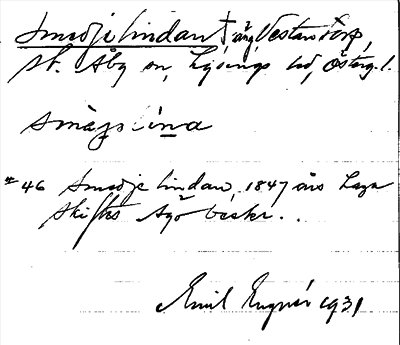 Smedjelindan † äng Vestantorp,
St. Åby sn, Lysings hd, Österg.l.
smè̱jslína
#46 Smedjelindan, 1847 års Laga
Skiftes Ägobeskr. .
Emil Engnér 1931